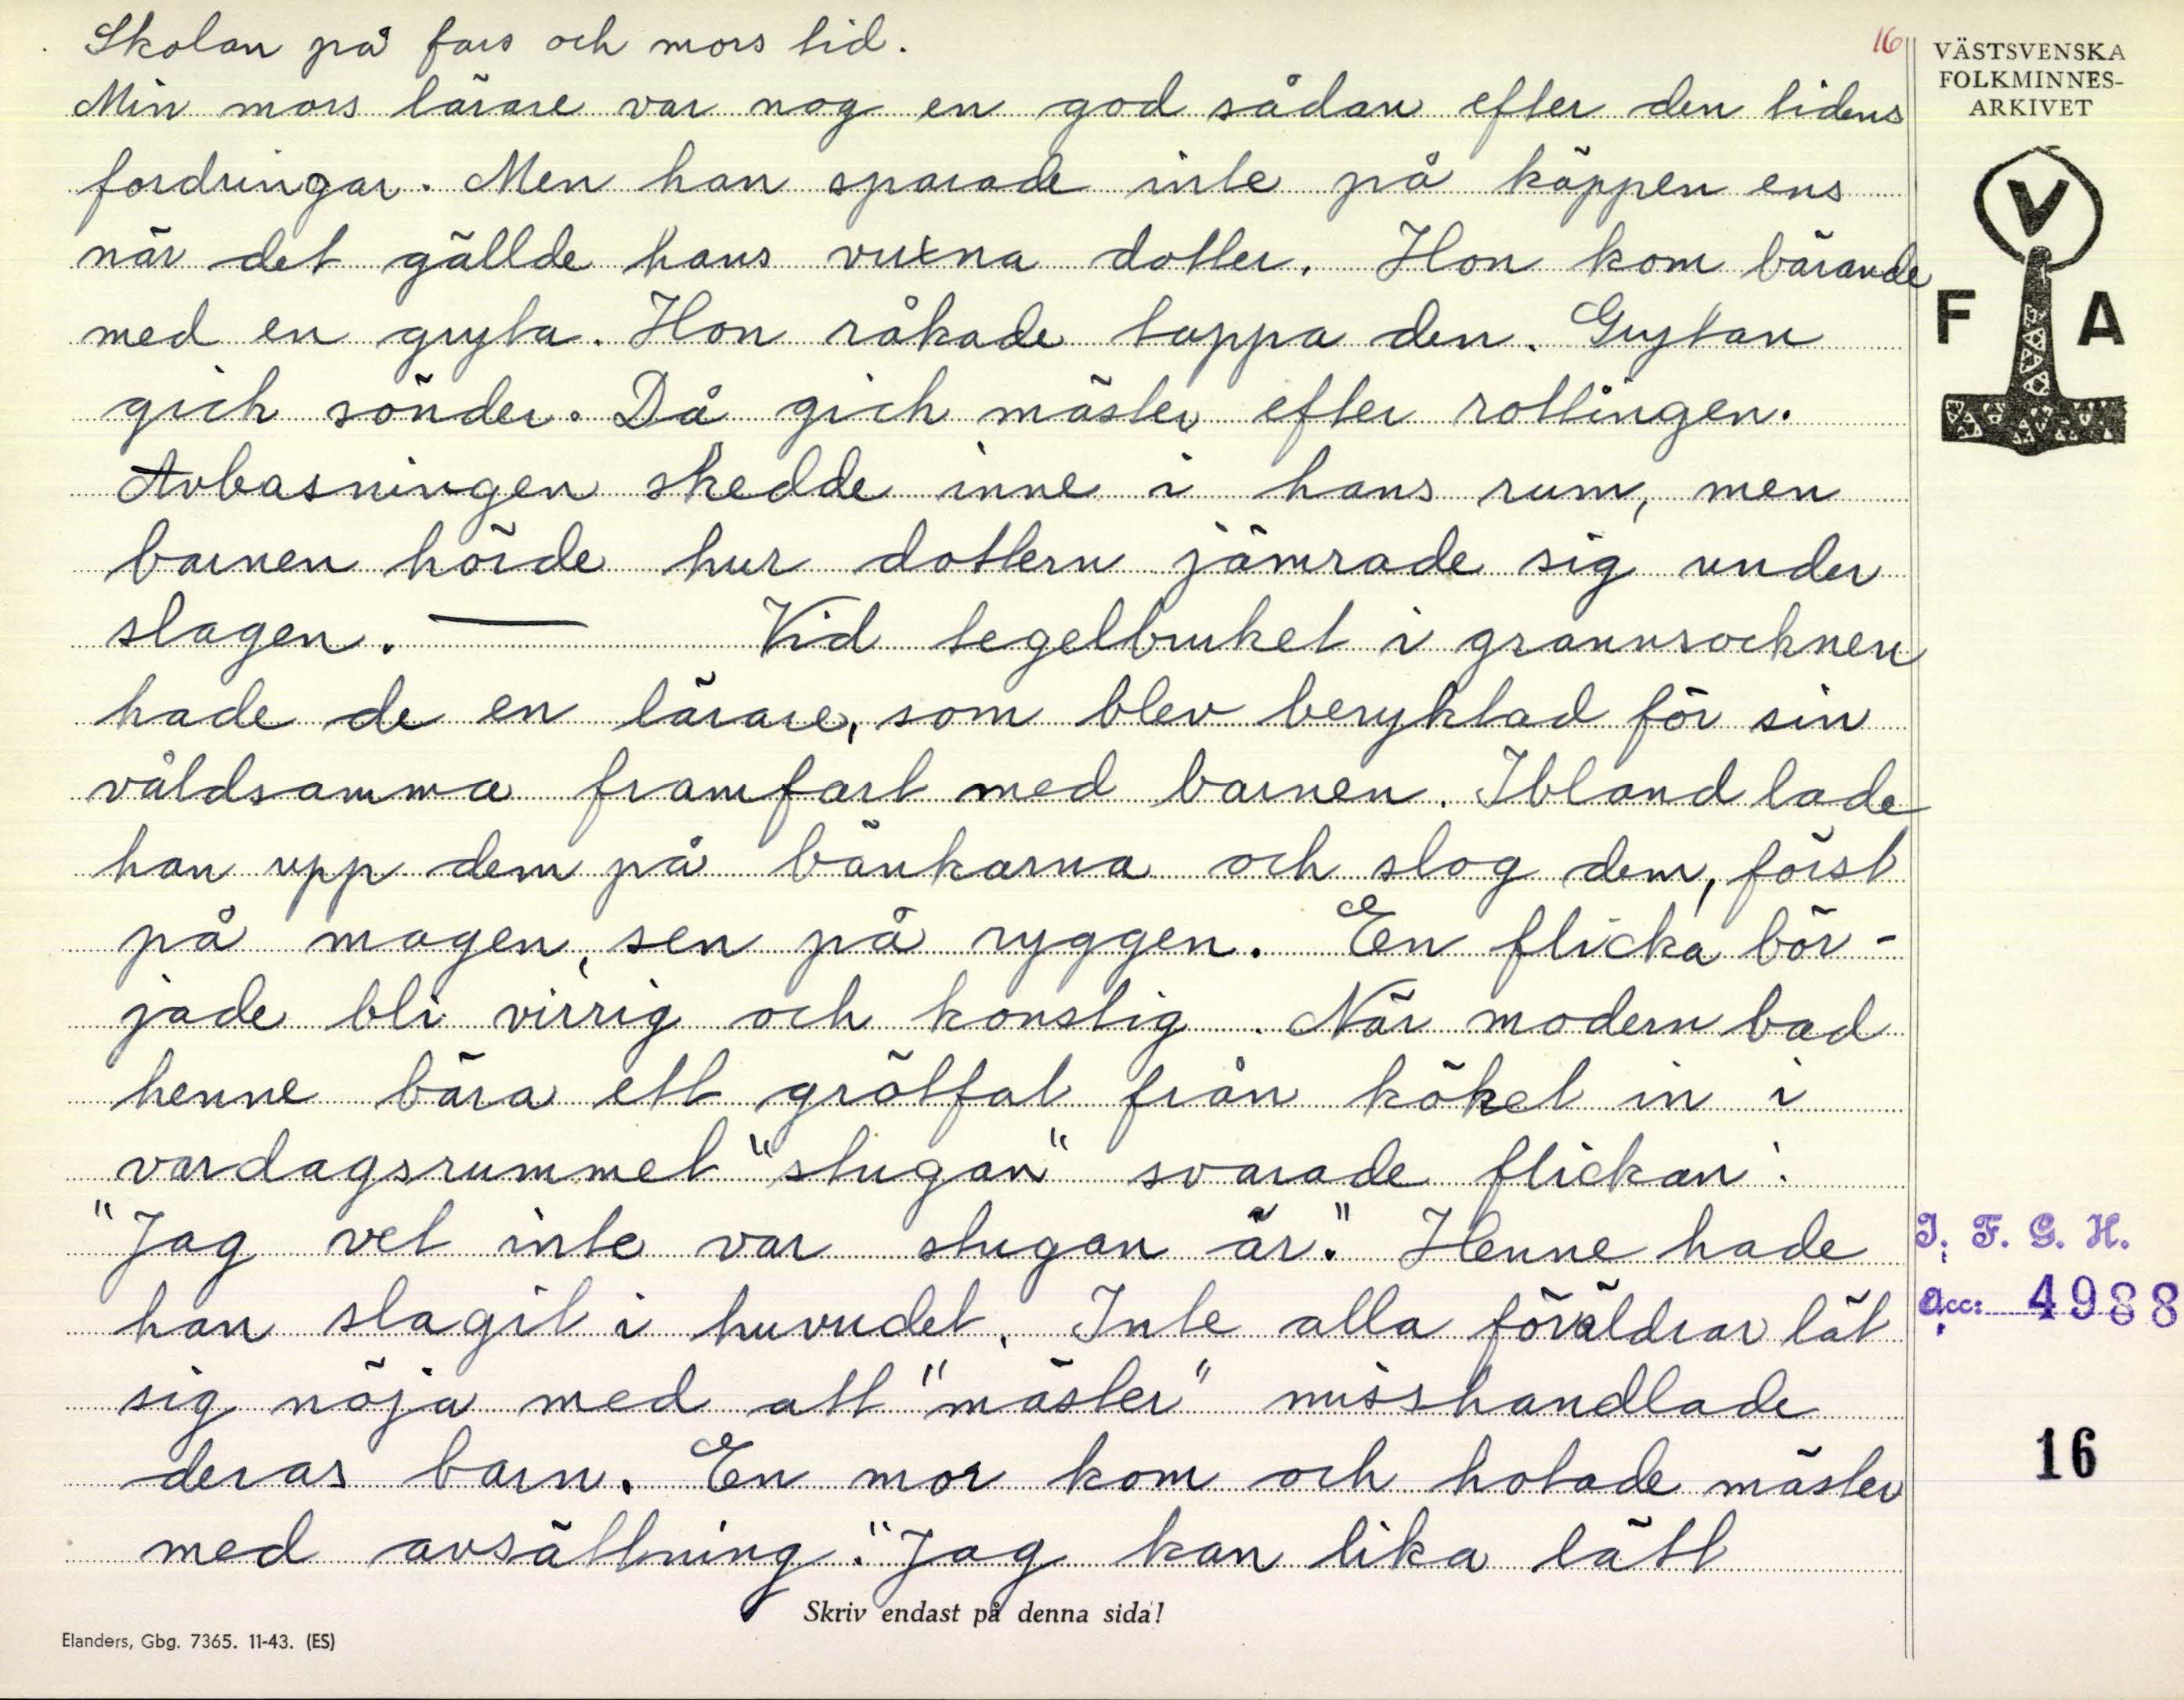 Skolan på fars och mors tid.
16
Min mors lärare var nog en god sådan efter den tidens
fordringar. Men han sparade inte på käppen ens
när det gällde hans vuxna dotter. Hon kom bärande
med en gryta. Hon råkade tappa den. Grytan
gick sönder. Då gick mäster efter rottingen.
Avbasningen skedde inne i hans rum, men
barnen hörde hur dottern jämrade sig under
slagen. — Vid tegelbruket i grannsocknen
hade de en lärare, som blev beryktad för sin
våldsamma framfart med barnen. Ibland lade
han upp dem på bänkarna och slog dem, först
på magen, sen på ryggen. En flicka bör-
jade bli virrig och konstig. När modern bad
henne bära ett grötfat från köket in i
vardagsrummet "stugan" svarade flickan:
"Jag vet inte var stugan är." Henne hade
han slagit i huvudet. Inte alla föräldrar lät
sig nöja med att "mäster" misshandlade
deras barn. En mor kom och hotade mäster
med avsättning. "Jag kan lika lätt
Skriv endast på denna sida!
Elanders, Gbg. 7365. 11-43. (ES)
VÄSTSVENSKA
FOLKMINNES-
ARKIVET
V
F A
I. F. G. H.
acc: 4988
16